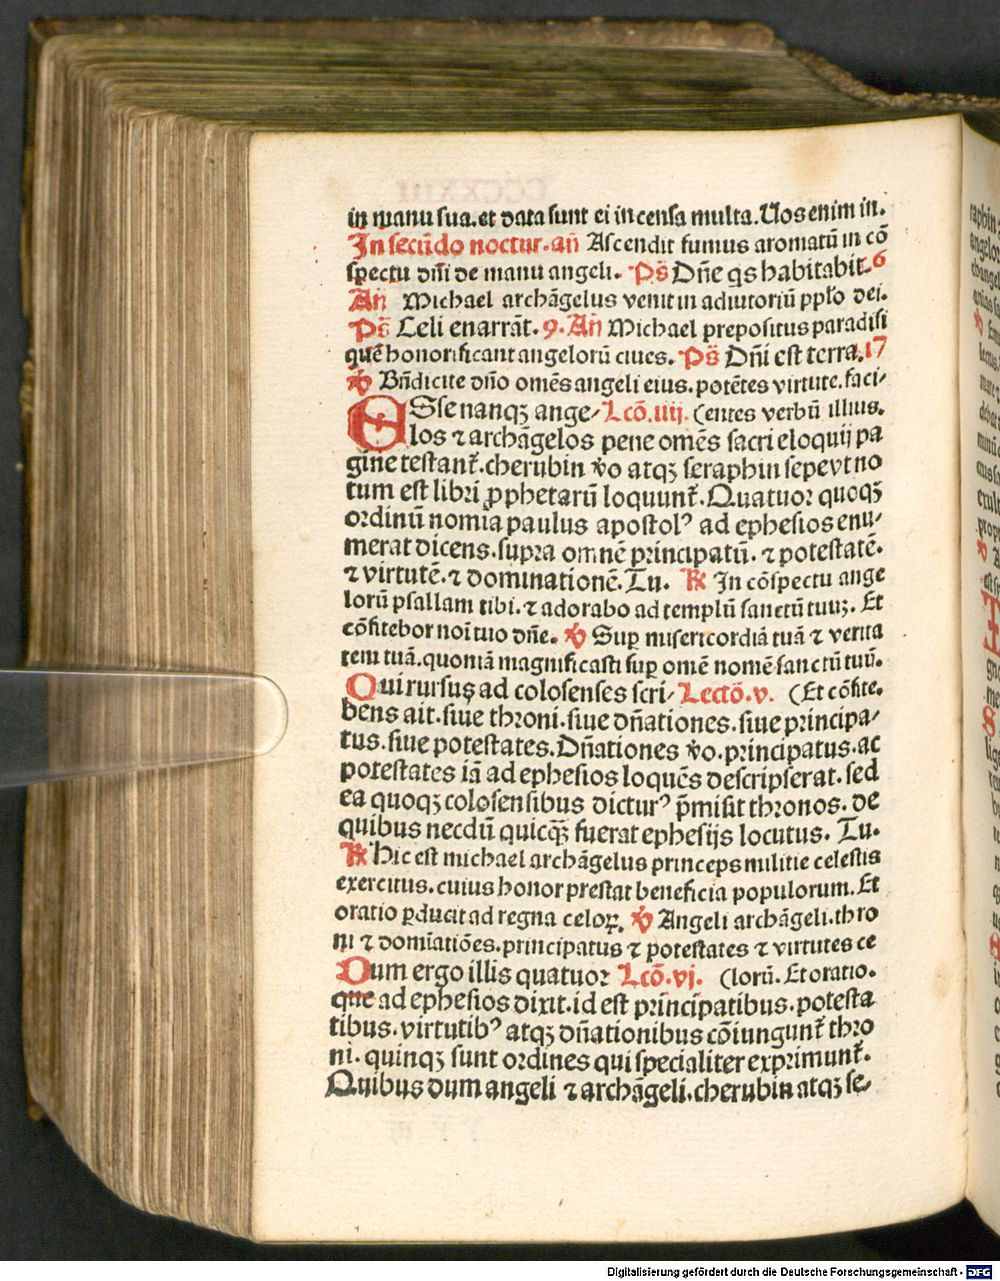 in manu sua.et data sunt ei incensa multa.Uos enim in.
In secūdo noctur.añ Ascendit fumus aromatū in cō
spectu dñi de manu angeli. Ps̄ Dñe qs habitabit.6
Añ Michael archāgelus venit in adiutoriū pplo dei.
Ps̄ Celi enarrāt.9.Añ Michael prepositus paradisi
quē honorificant angelorū ciues. Ps̄ Dñi est terra.17
℣ Bñdicite dño omēs angeli eius.potētes virtute.faci⸗
ESse nanqꝫ ange⸗ Lcō.iiij. (entes verbū illius.
los ⁊ archāgelos pene omēs sacri eloquij pa
gine testant᷑.cherubin v̊o atqꝫ seraphin sepe vt no
tum est libri ꝓphetarū loquunt᷑.Quatuor quoqꝫ
ordinū nomīa paulus apostolꝰ ad ephesios enu⸗
merat dicens.supra omnē principatū.⁊ potestatē.
⁊ virtutē.⁊ dominationē.Tu. ℟ In cōspectu ange
lorū psallam tibi.⁊ adorabo ad templū sanctū tuuꝫ. Et
cōfitebor noī tuo dñe. ℣ Suꝑ misericordiā tuā ⁊ verita
tem tuā.quoniā magnificasti suꝑ omē nomē sanctū tuū.
Qui rursus ad colosenses scri⸗ Lectō.v. (Et cōfite.
bens ait.siue throni.siue dñationes.siue principa⸗
tus.siue potestates.Dñationes v̊o.principatus.ac
potestates iā ad ephesios loquēs descripserat.sed
ea quoqꝫ colosensibus dicturꝰ p̄misit thronos.de
quibus necdū quicqꝫ̄ fuerat ephesijs locutus. Tu.
℟ Hic est michael archāgelus princeps militie celestis
exercitus.cuius honor prestat beneficia populorum.Et
oratio ꝑducit ad regna celoꝝ. ℣ Angeli archāgeli.thro
ni ⁊ domīatiōes.principatus ⁊ potestates ⁊ virtutes ce
Dum ergo illis quatuor Lcō.vj. (lorū. Et oratio.
que ad ephesios dixit.id est principatibus.potesta
tibus.virtutibꝰ atqꝫ dñationibus cōiungunt᷑ thro
ni.quinqꝫ sunt ordines qui specialiter exprimunt᷑.
Quibus dum angeli ⁊ archāgeli.cherubin atqꝫ se⸗
Digitalisierung gefördert durch die Deutsche Forschungsgemeinschaft - DFG